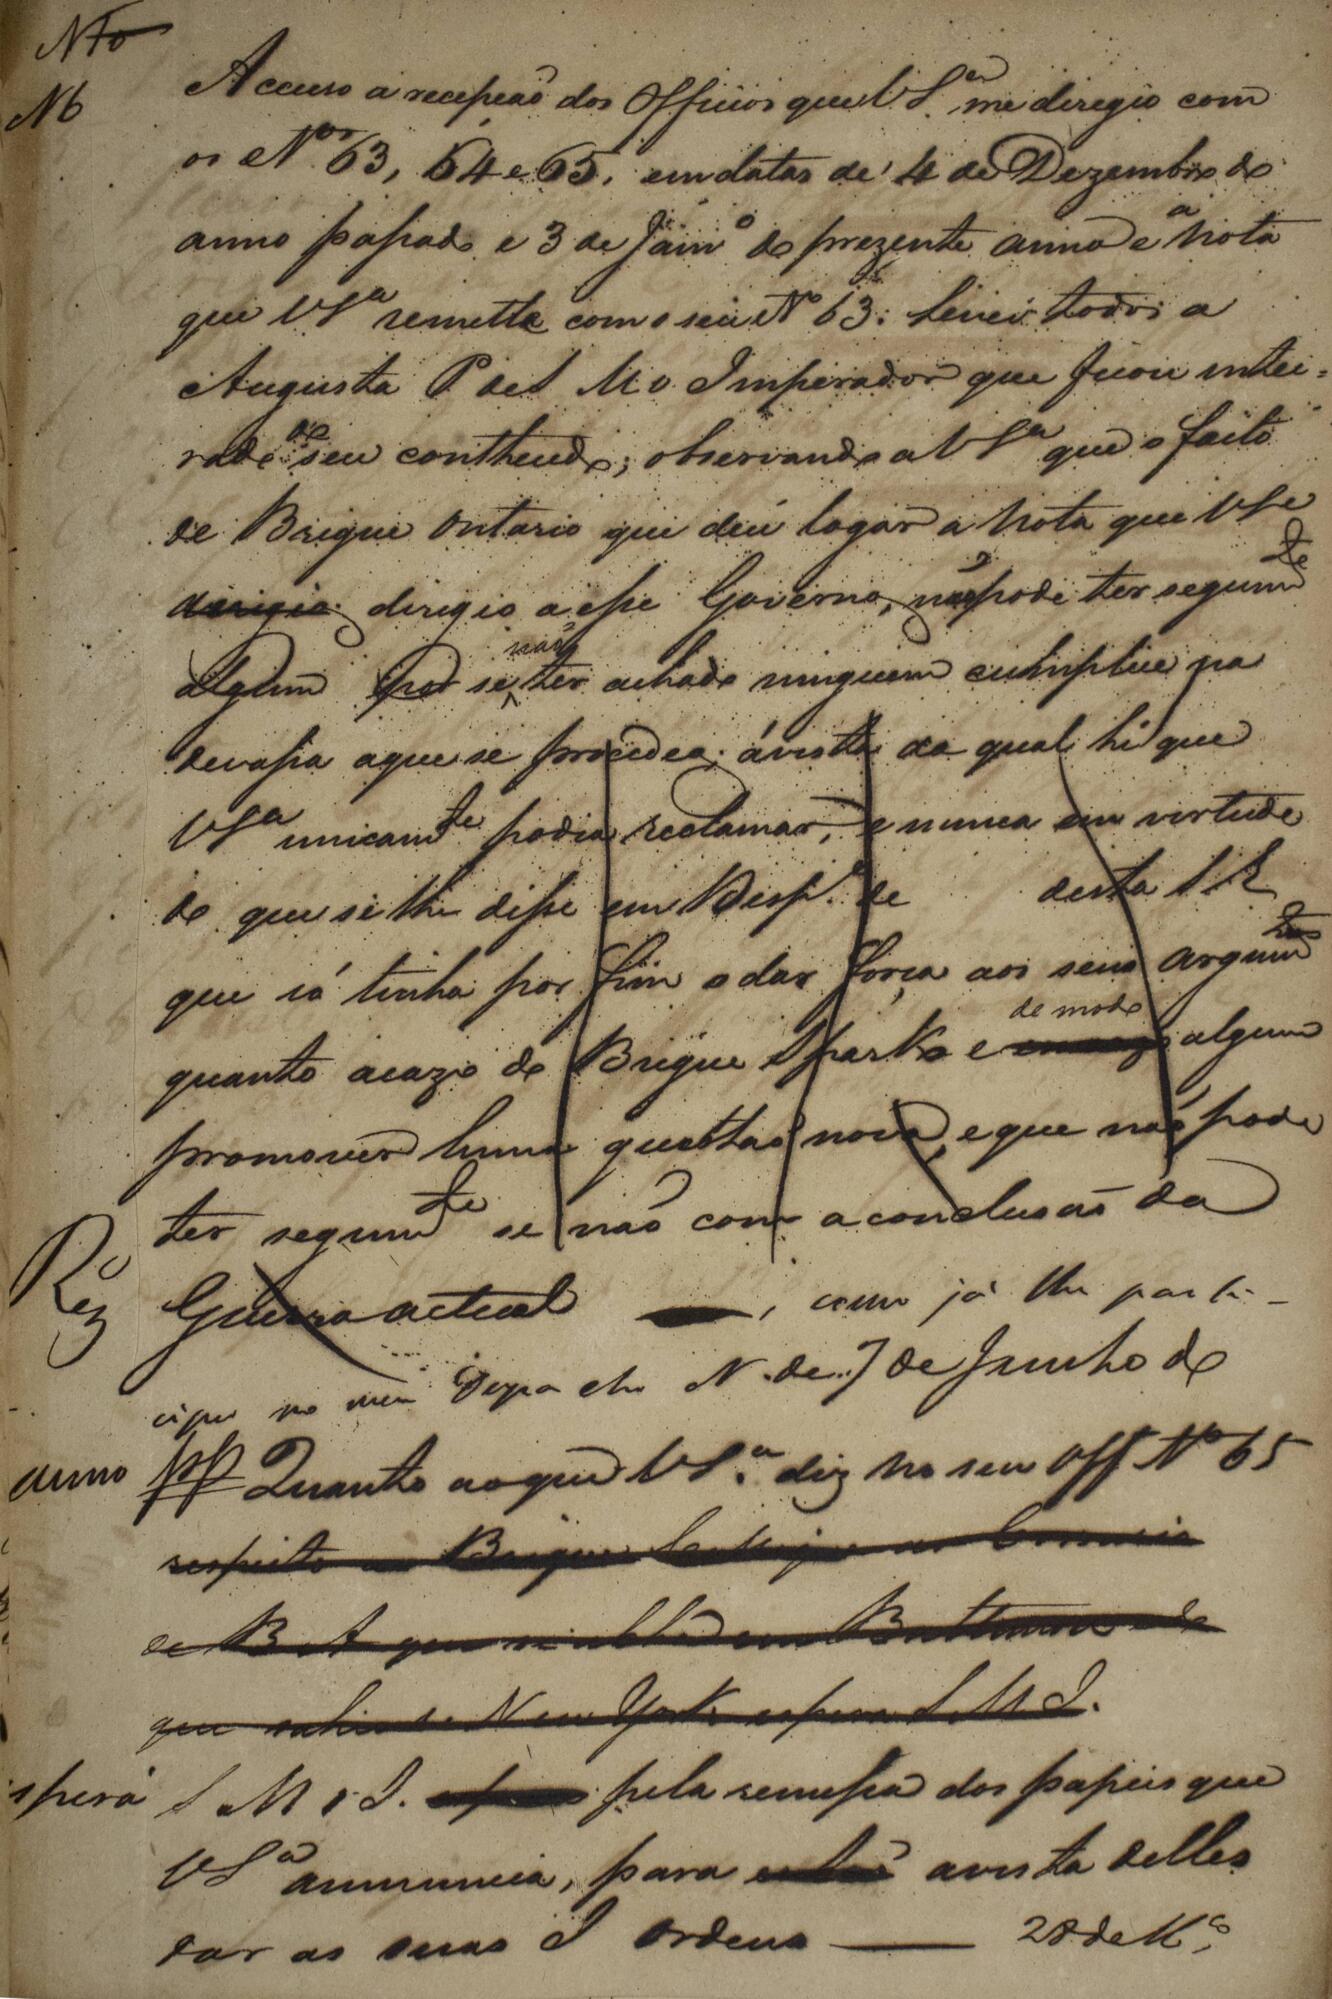 N 10
N 6
Accuso a recepção dos Officios que V Sª me diregio com
os Nos 63, 64 e 65, em datas de 4 de Dezembro do
anno passado e 3 de Jainº do prezente anno e a Nota
que V Sª remette com o seu Nº 63: Levei todos a
Augusta P de S M o Imperador que ficou intei=
rado de seu contheudo; observando a V Sª que o facto
do Brigue Ontario que deu logar a Nota que V Sª
dirigio dirigio a esse Governo, não pode ter seguimte
algum por se não ter achado ninguem cumplice na
devassa a que se procedeo; á vista da qual hé que
V Sª unicamte podia reclamar, e nunca em virtude
do que se lhe disse em Desp. de desta S E
que só tinha por fim o dar força aos seus argumtos
quanto a cazo do Brigue Spark e de modo algum
promover huma questão nova, e que não pode
ter seguimte se não com a conclusão da
Guerra actual , como já lhe parti-
cipei no meu Despacho N. de 7 de Junho do
anno pp Quanto ao que V Sª diz no seu Off Nº 65
respeito ao Brigue
de B A que em Baltimore
que New York espera S M I.
espera S M o I. pela remessa dos papeis que
V Sª annuncia, para avista delles
dar as suas I Ordens — 28 de Mço